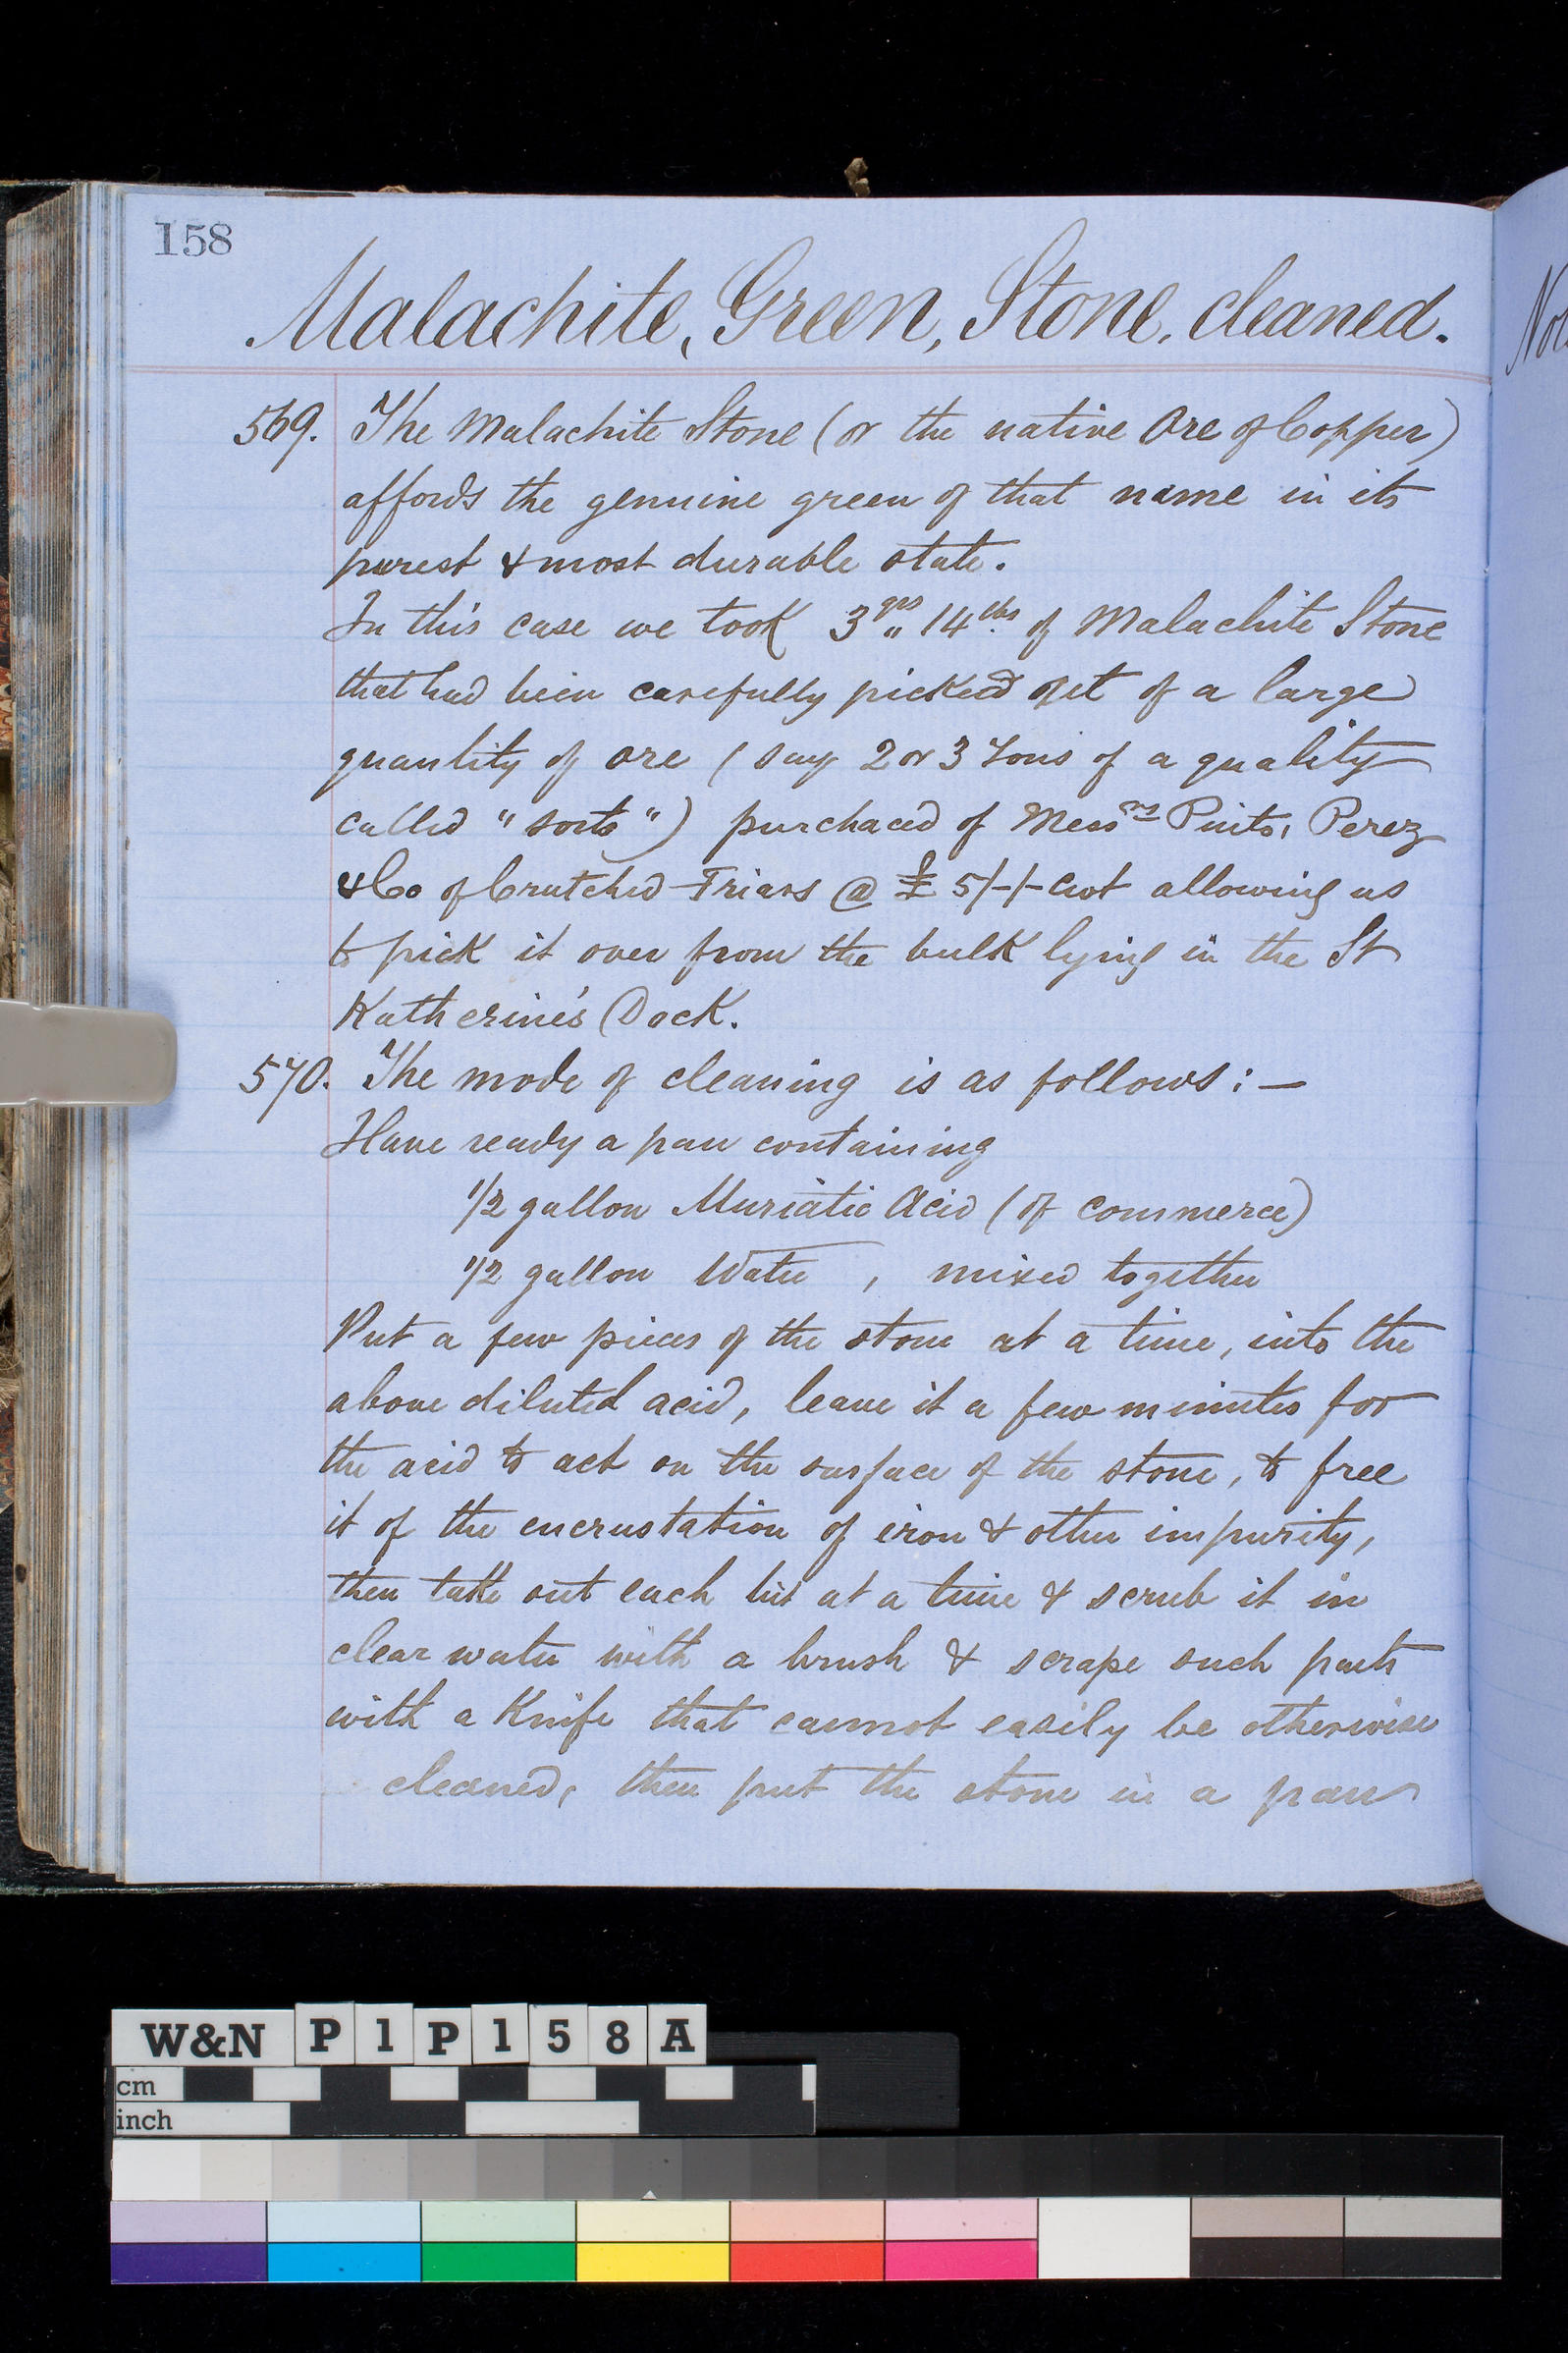 158
Malachite, Green, Stone, cleaned.
569. The Malachite Stone (or the native Ore of Copper)
affords the genuine green of that name in its
purest & most durable state.
In this case we took 3 qrs " 14 lbs of Malachite Stone
that had been carefully picked out of a large
quantity of ore (say 2 or 3 Tons of a quality
called "sorts") purchaced of Messrs Pinto, Perez
& Co of Crutched Friars @ £5/-/- Cwt allowing us
to pick it over from the bulk lying in the St
Katherine's Dock.
570. The mode of cleaning is as follows:—
Have ready a pan containing
1/2 gallon Muriatic Acid (of commerce)
1/2 gallon Water, mixed together
Put a few pieces of the stone at a time, into the
above diluted acid, leave it a few minutes for
the acid to act on the surface of the stone, to free
it of the encrustation of iron & other impurity,
then take out each bit at a time & scrub it in
clear water with a brush & scrape such parts
with a Knife that cannot easily be otherwise
cleaned, then put the stone in a pan
W&N P1P158A
cm
inch